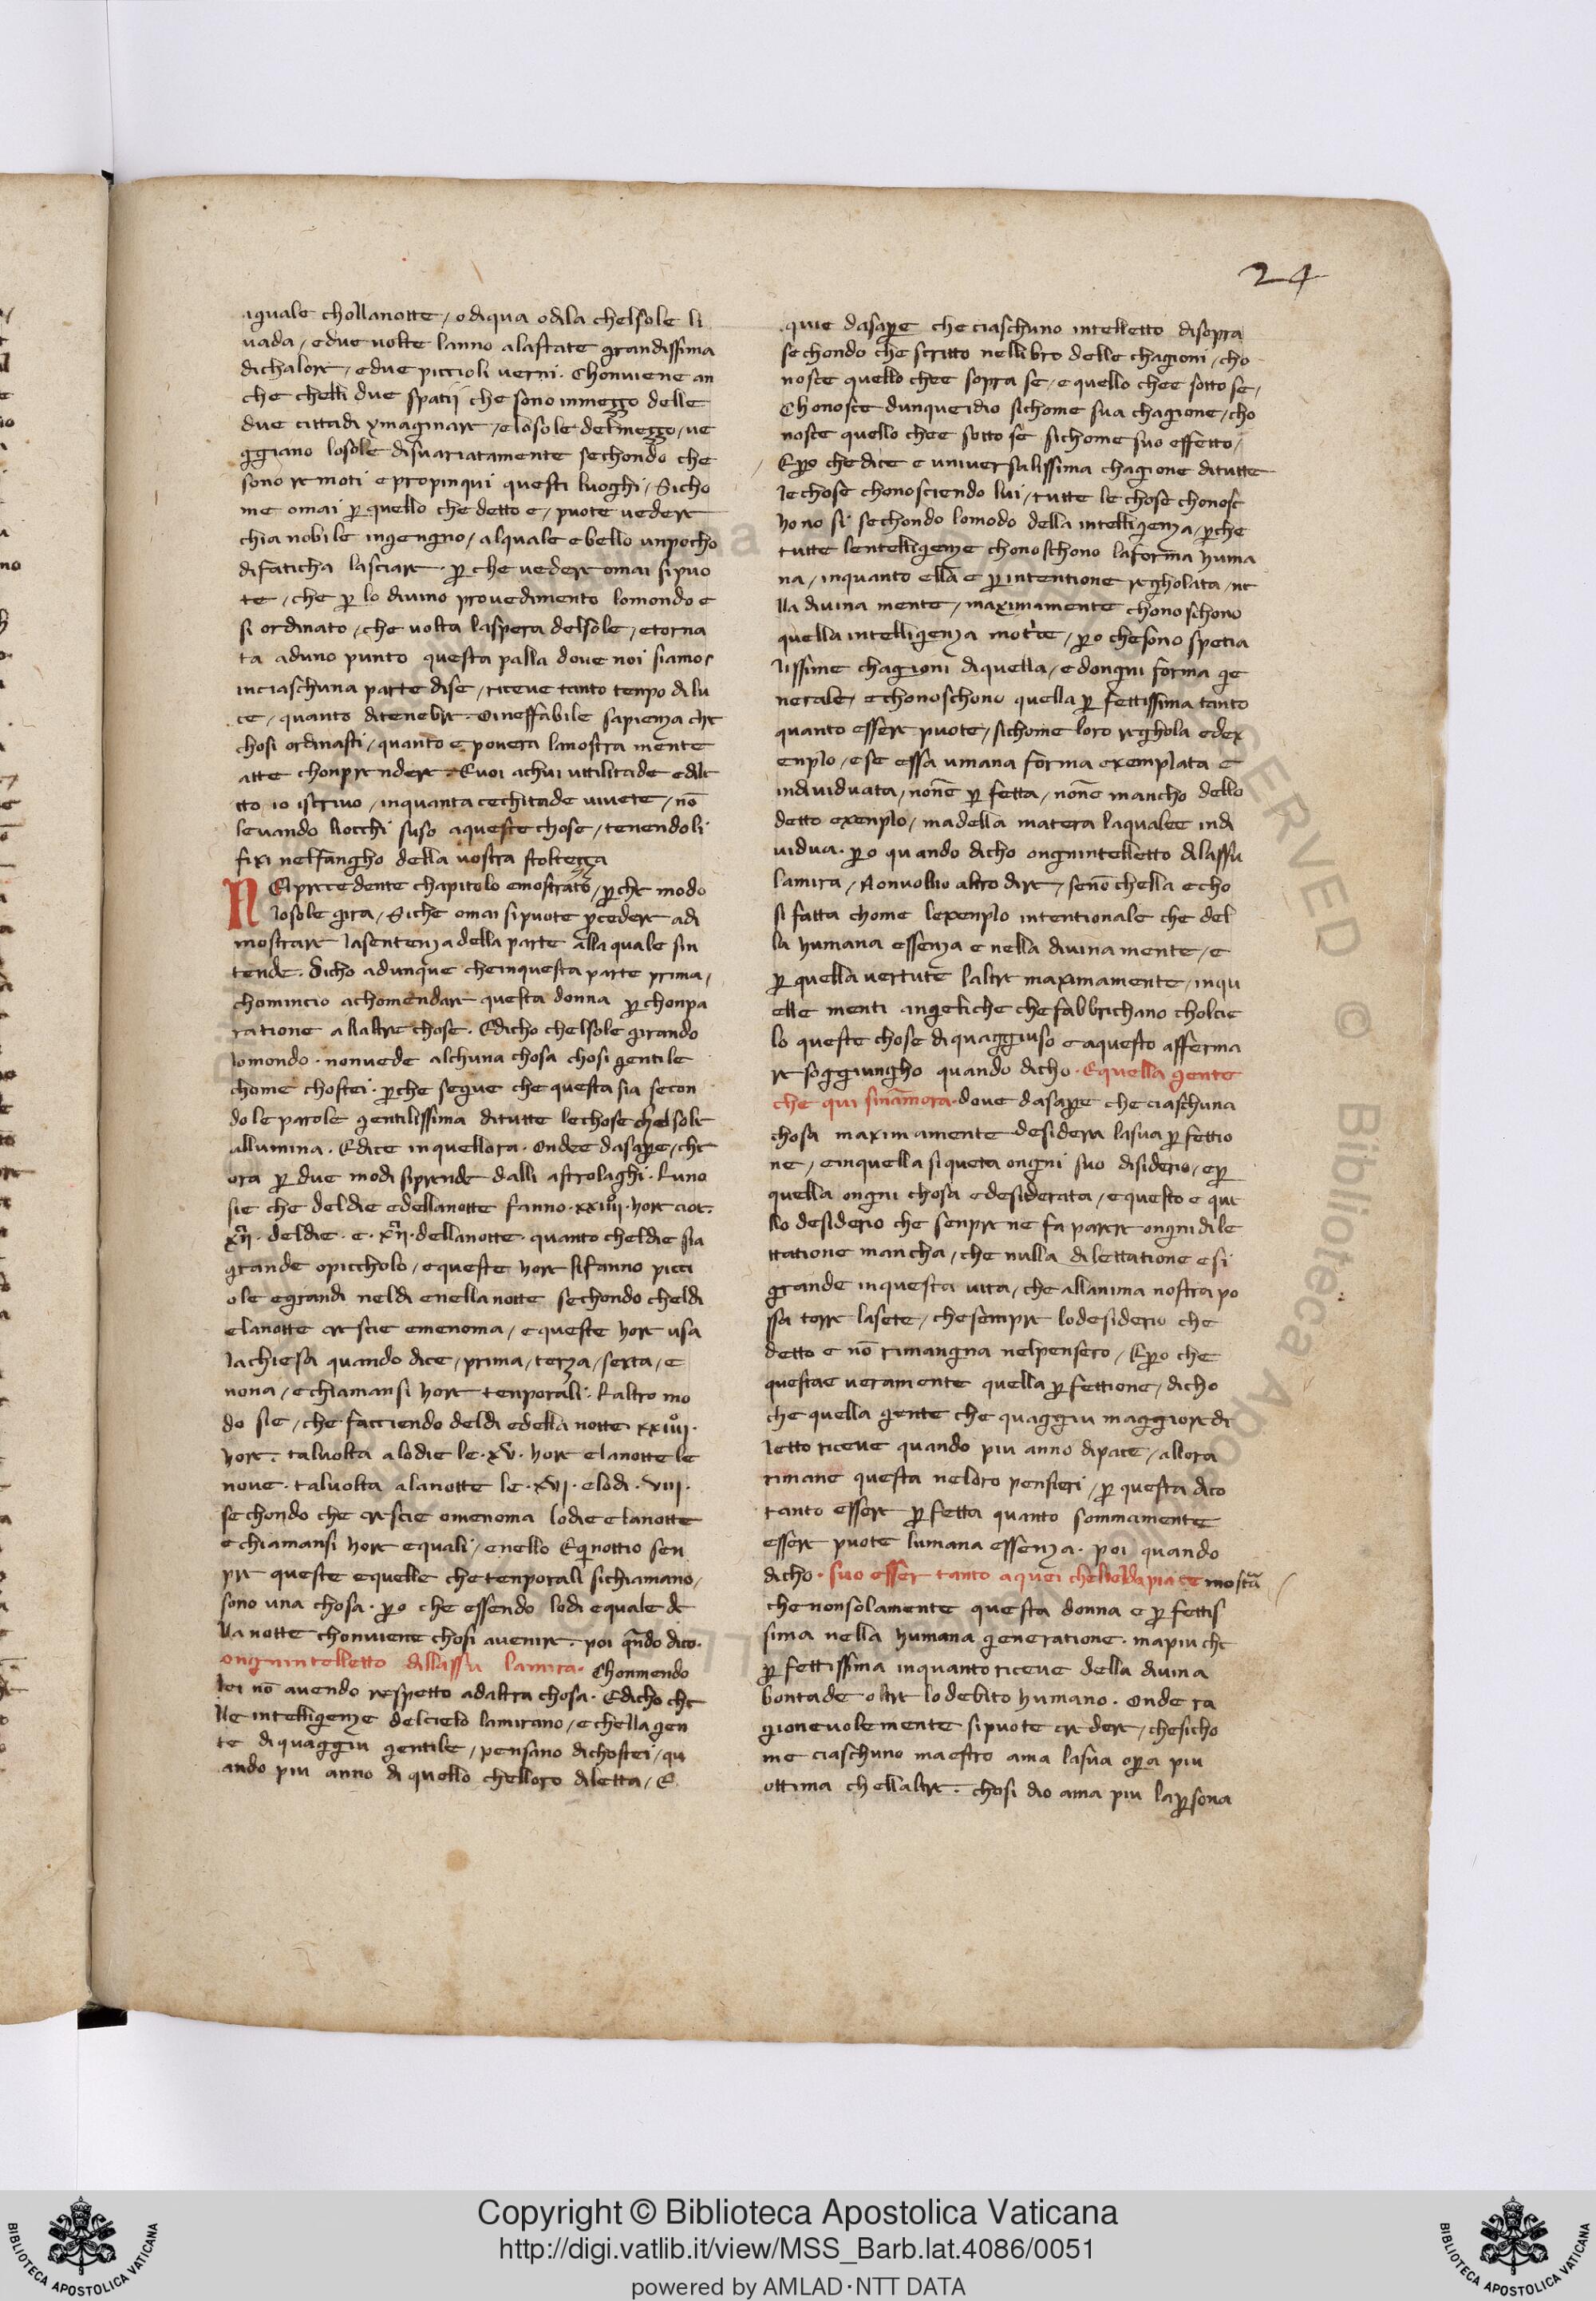 24
iguale chollanotte / o diqua o dila chelsole li
vada / e due volte lanno a lastate grandissima
dichalore / e due piccioli verni . Chonviene an
che chelli due spatij che sono inmezzo delle
due cittadi ymaginare / e losole delmezzo / ve
ggiano losole disvariatamente sechondo che
sono remoti e propinqui questi luoghi / Sicho
me omai ꝑ quello che detto e / puote vedere
chia nobile ingengno / alquale e bello unpocho
difaticha lasciare . ꝑ che vedere omai sipuo
te / che ꝑ lo divino provedimento lomondo e
si ordinato / che volta laspera delsole / e torna
ta aduno punto questa palla dove noi siamo /
inciaschuna parte dise / riceve tanto tenpo dilu
ce / quanto ditenebre . O ineffabile sapienza che
chosi ordinasti / quanto e povera lanostra mente
atte chonprendere . E voi achui utilitade e dile
tto io iscrivo / inquanta cechitade vivete / nō
levando liocchi suso aqueste chose / tenendoli
fixi nelfangho della vostra stoltezza
NElprecedente chapitolo emostrato / ꝑche modo
losole gira / Siche omai sipuote ꝓcedere adi
mostrare lasentenza della parte alla quale sin
tende . Dicho adunque cheinquesta parte prima /
chomincio achomendare questa donna ꝑ chonpa
ratione allaltre chose . Edicho chelsole girando
lomondo . nonvede alchuna chosa chosi gentile
chome chostei . ꝑche segue che questa sia secon
do le parole gentilissima ditutte lechose chelsole
allumina . Edice inquellora . Ondee dasaꝑe / che
ora ꝑ due modi siprende dalli astrolaghi . Luno
sie che deldie edellanotte fanno . xxiiij . hore cioe .
xij . deldie . e . xij . dellanotte . quanto cheldie sia
grande opiccholo / e queste hore sifanno picci
ole egrandi neldi enella notte sechondo cheldi
elanotte crescie emenoma / e queste hore usa
lachiesa quando dice / prima / terza / sexta / e
nona / echiamansi hore tenporali . Laltro mo
do sie / che facciendo deldi edella notte xxiiij .
hore . talvolta alodie le . xv . hore elanotte le
nove . talvolta alanotte le . xvi . elodi . viii .
sechondo che crescie omenoma lodie elanotte
echiamansi hore equali / enello Eqinottio sen
pre queste equelle che tenporali sichiamano /
sono una chosa . ꝑo che essendo lodi equale de
lla notte chonviene chosi avenire . poi qn̄do dico .
ongnintelletto dillassu lamira . Chonmendo
lei nō avendo respetto adaltra chosa . Edicho che
lle intelligenze delcielo lamirano / e chella gen
te diquaggiu gentile / pensano dichostei / qu
ando piu anno di quello chelloro diletta / E
quie dasaꝑe che ciaschuno intelletto disopra
sechondo che scritto nellibro delle chagioni / cho
nosce quello chee sopra se / e quello chee sotto se /
Chonosce dunqueidio sichome sua chagione / cho
nosce quello chee sotto se sichome suo effetto /
Eꝑo che dice e universalissima chagione ditutte
lechose chonosciendo lui / tutte le chose chonosc
hono si sechondo lomodo della intelligenza / ꝑche
tutte lentelligenze chonoschono laforma huma
na / inquanto ella e ꝑintentione regholata / ne
lla divina mente / maximamente chonoschono
quella intelligenza motrice / ꝑo chesono spetia
lissime chagioni diquella / e dongni forma ge
nerale / e chonoschono quella ꝑfettissima tanto
quanto essere puote / sichome loro reghola edex
enplo / e se essa umana forma exemplata e
individuata / none ꝑfetta / none mancho dello
detto exenplo / madella matera laqualee indi
vidua . ꝑo quando dicho ongnintelletto dilassu
lamira / Nonvollio altro dire / senō chella e cho
si fatta chome lexenplo intentionale che del
la humana essenza e nella divina mente / e
ꝑ quella vertute laltre maximamente / inqu
elle menti angeliche chefabbrichano cholcie
lo queste chose di quaggiuso e aquesto afferma
re soggiungho quando dicho . Equella gente
che qui sinamora . dove dasapere che ciaschuna
chosa maximamente desidera lasua ꝑfettio
ne / einquella siqueta ongni suo disiderio / eꝑ
quella ongni chosa edesiderata / e questo e que
llo desiderio che senpre ne fa parere ongni dile
ttatione mancha / che nulla dilettatione e si
grande inquesta vita / che allanima nostra po
ssa torre lasete / chesempre lodesiderio che
detto e nō rimangna nelpensero / Eꝑo che
questae veramente quella ꝑfettione / dicho
che quella gente che quaggiu maggior di
letto riceve quando piu anno dipace / allora
rimane questa neloro pensieri / ꝑ questa dico
tanto essere ꝑfetta quanto sommamente
essere puote lumana essenza . poi quando
dicho . suo esser tanto aquei chelieldapiace mostrā
che nonsolamente questa donna e ꝑfettis
sima nella humana generatione . mapiu che
ꝑfettissima inquanto riceve della divina
bontade oltre lo debito humano . Onde ra
gionevolemente sipuote credere / chesicho
me ciaschuno maestro ama lasua oꝑa piu
ottima chellaltre . chosi dio ama piu laꝑsona
Copyright © Biblioteca Apostolica Vaticana
http://digi.vatlib.it/view/MSS_Barb.lat.4086/0051
powered by AMLAD·NTT DATA